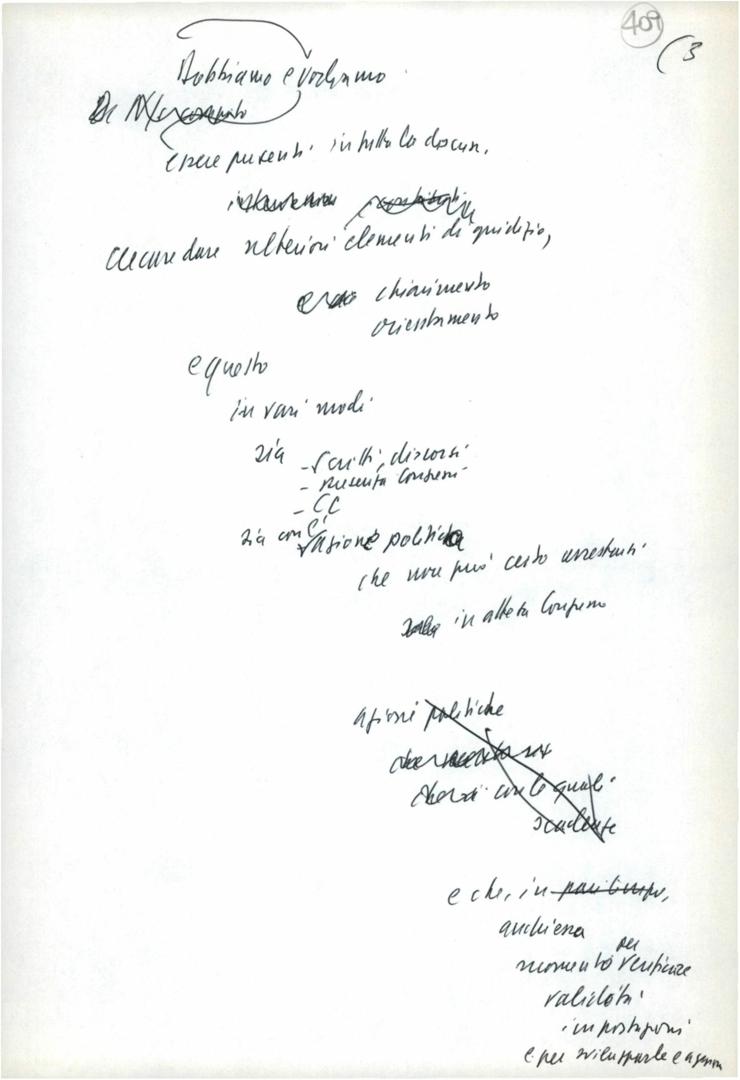 409
(3
Dobbiamo e vogliamo
essere presenti in tutta la discuss.
dare ulteriori elementi di giudizio,
chiarimento
orientamento
e questo
in vari modi
sia - scritti, discorsi
- presenza Congressi
- CC
sia con l'azione politica
che non può certo arrestarsi
in attesa Congresso
azioni politiche
con le quali
scadenze
e che, in pari tempo,
anch'essa
momento per verificare
validità
impostazioni
e per svilupparle e